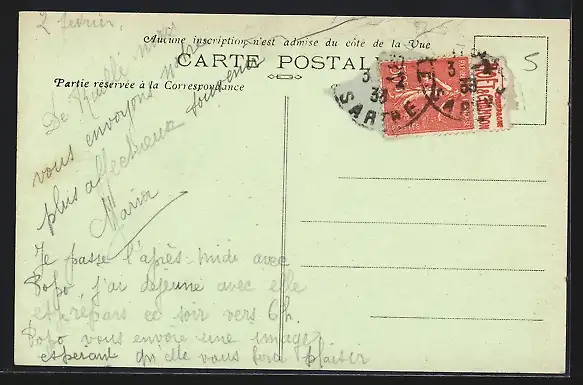 2 fevrier.
Aucune inscription n'est admise du côté de la Vue
CARTE POSTALE
Partie réservée à la Correspondance
5
3
33
SARTHE
3
33
SARTHE
De Ruillé nous
vous envoyons notre
plus affectueux souvenir
Maria
Je passe l'après-midi avec
Popo j'ai déjeuné avec elle
et repars ce soir vers 6h.
Popo vous envoie une image
esperant qu'elle vous fera plaisir